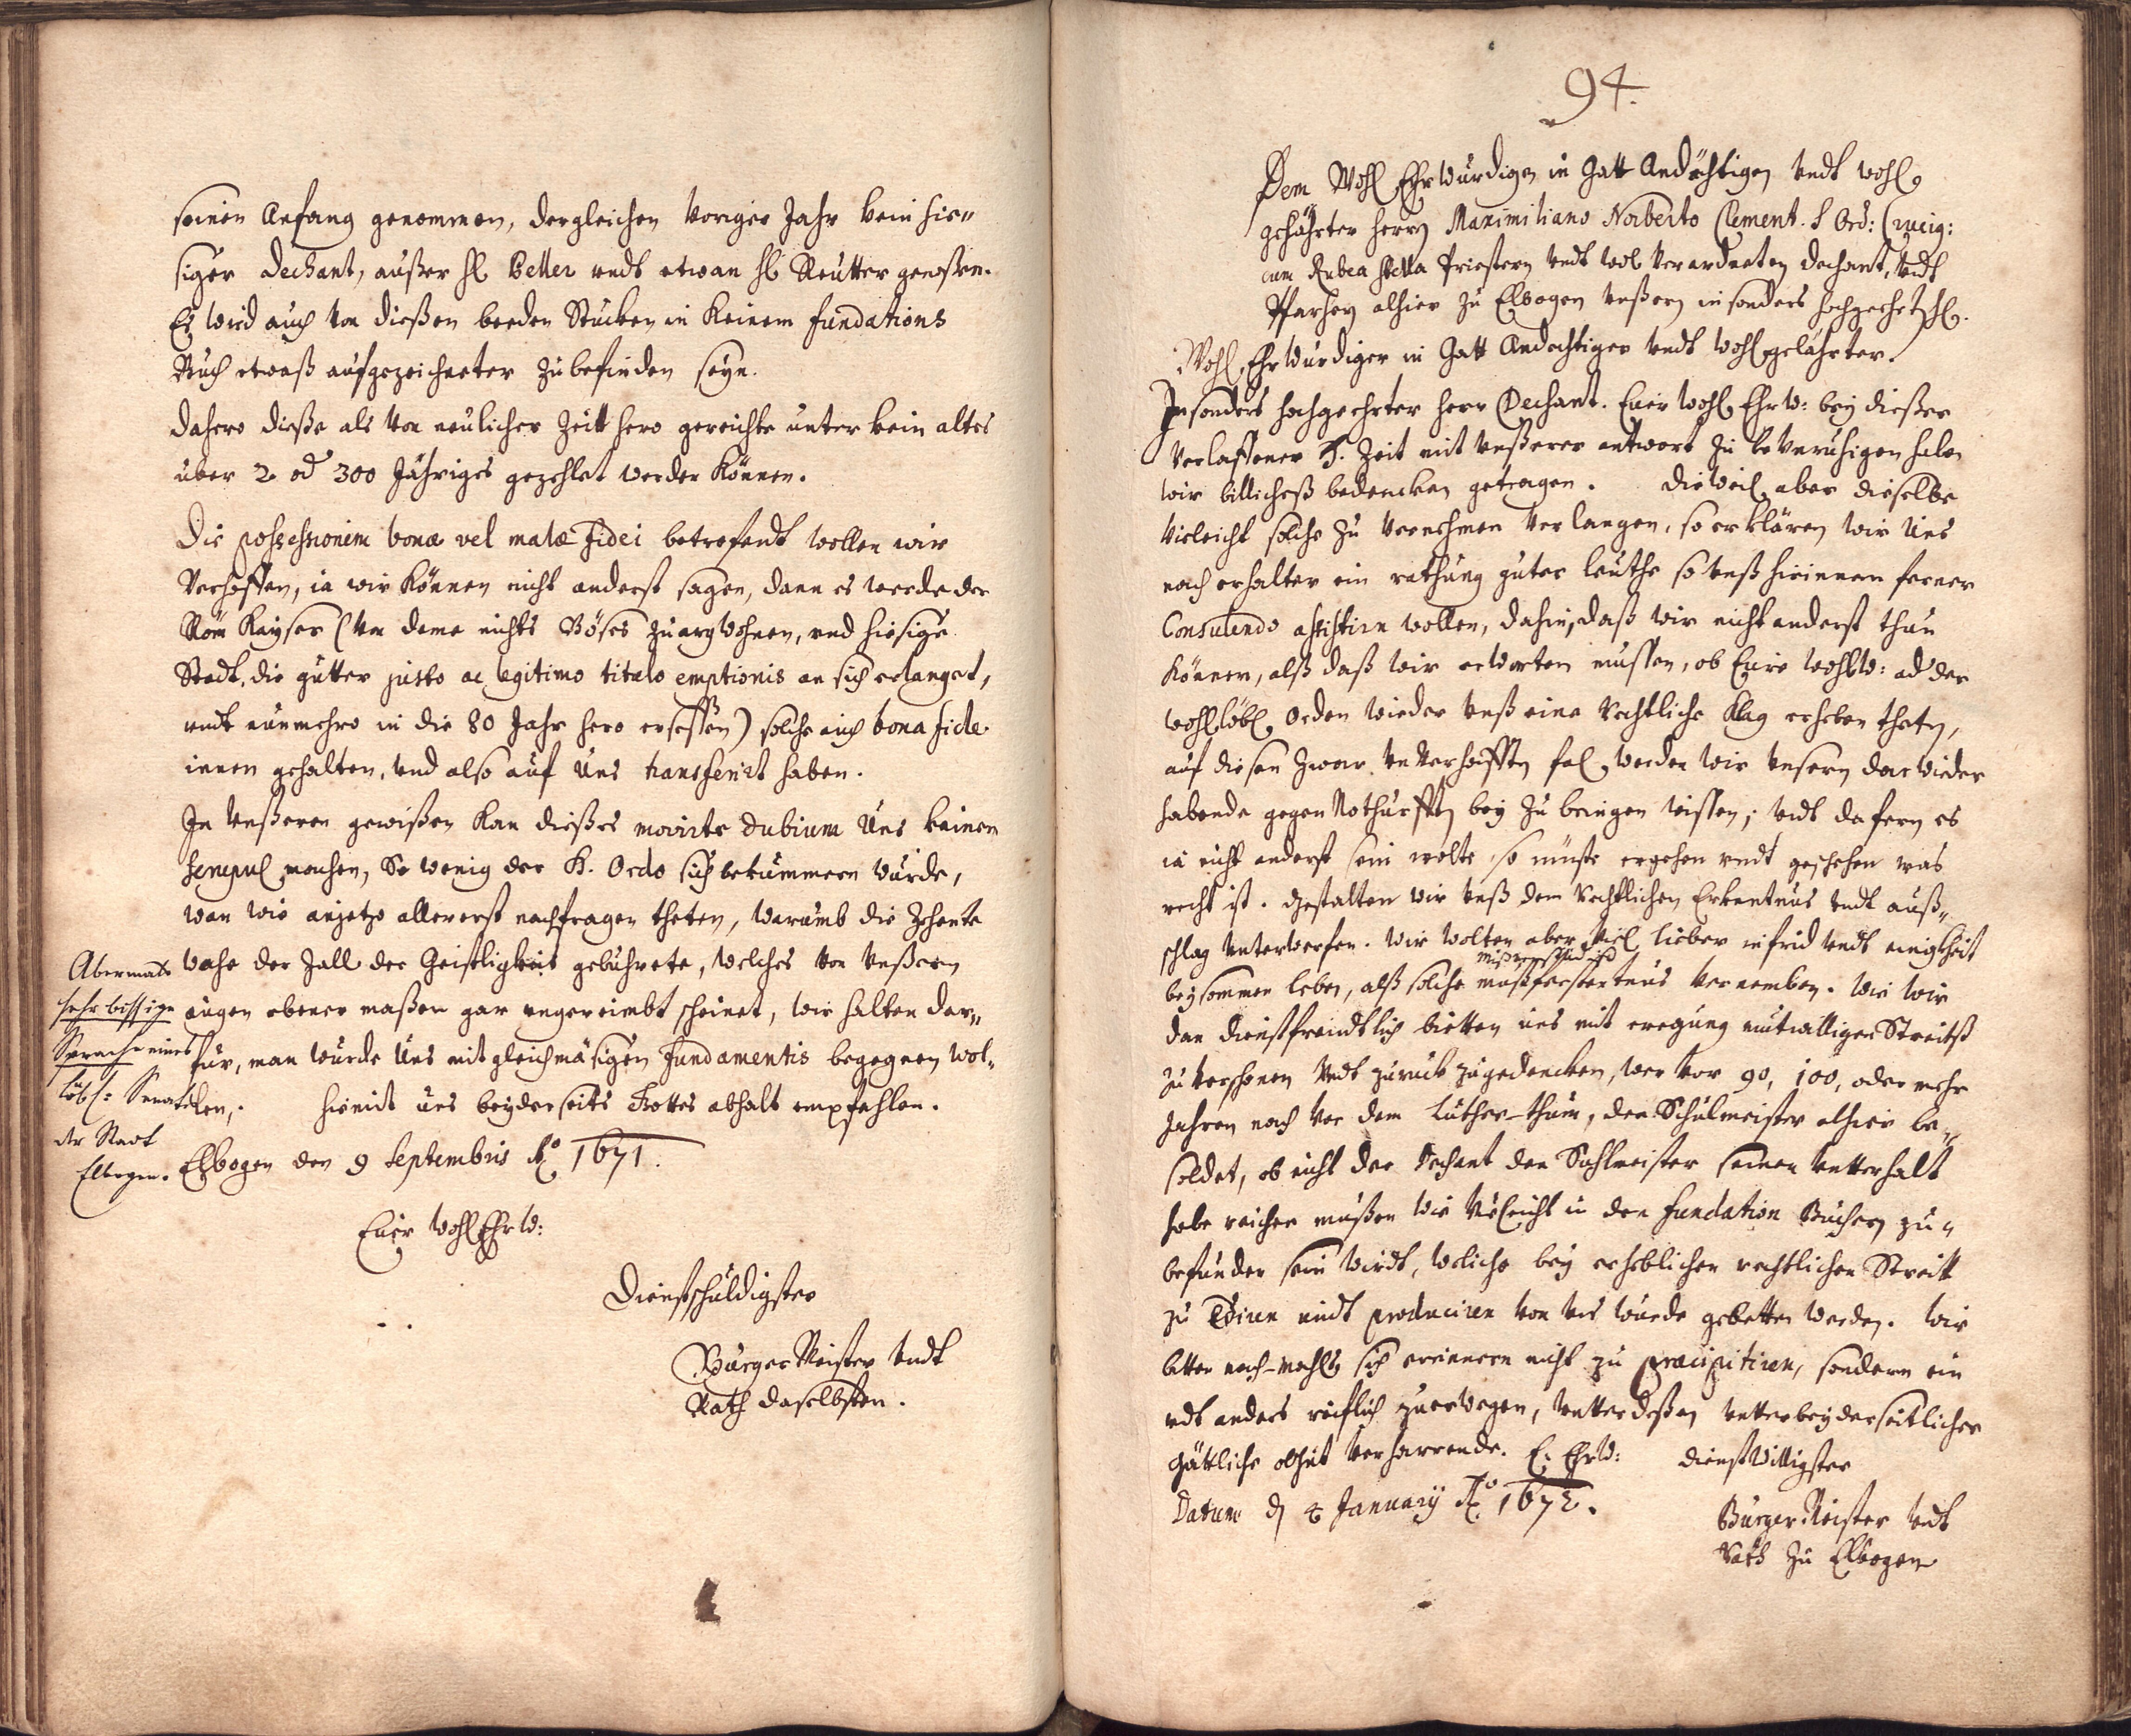 seinen Anfang genommen, dergleichen voriger Jahr kein hie„
siger Dechant, außer H. Beller undt etwan H. Reutter genoßen.
Es wird auch von dießen beeden Stucken in Keinem fundations
Buch etwaß aufgezeichneter zubefinden seyn.
Dahero dieße als von neulicher Zeitt hero gereichte unter kein altes
über 2 od 300 Jähriges gezehlet werden Können.
Die possessionem bonæ vel malæ fidei betrefendt wollen wir
Verhoffen, ia wir Können nicht anderst sagen, dann es werde der
Röm Kayser (von deme nichts Böses zuargwohnen, und hiesige
Stadt, die gütter justo ac legitimo titulo emptionis an sich erlanget,
undt nunmehro in die 80 Jahr hero ersessen) solche auch bona fide
innen gehalten, und also auf Uns transferirt haben.
In Unßeren gewißen Kan dießes movirte dubium Uns keinen
scrupul machen, So wenig der H. Ordo sich bekümmern würde,
wan wir anjetzo allererst nachfragen theten, warumb die Zehente
vohe der Zall der Geistligkeit gebührete, welches von Unßern
augen ebener maßen gar ungereimbt scheinet, wir halten dar„
für, man würde Uns mit gleichmäsigen fundamentis begegnen wol„
len,. hiemit uns beyderseits Gottes obhalt empfehlen.
Elbogen den 9 Septembris Aō 1671.
Abermals
sehr bissige
Sprache eines
löbl: Senats
der Stadt
Elbogen.
Euer WohlEhrw:
Dienstschuldigster
BurgerMeister undt
Rath daselbsten.
94.
Dem WohlEhrwürdigen in Gott Andächtigen undt wohl
gelährten Herrn Maximiliano Norberto Clement. S Ord: Crucig:
cum Rubea stella Priestern undt wol Verordneten Dechant, undt
Pfarhern alhier zu Elbogen Unßern insonders hochgeehrtzH.
WohlEhrwürdiger in Gott Andechtiger undt wohlgelährter.
Insonders hochgeehrter Herr Dechant. Euer WohlEhrw: bey dießer
verlaffener H. Zeit mit unßerer antwort zu beunruhigen haben
wir billicheß bedencken getragen. Dieweil aber dieselbe
vieleicht solche zu vernehmen verlangen, so erklären wir Uns
nach erhalter ein rathung guter leuthe so unß hirinnen ferner
Consulendo assistirn wollen, dahin, daß wir nicht anderst thun
können, alß daß wir erwarten müssen, ob Eure Wohlw: od der
wohllöbl. Orden wieder unß eine rechtliche Klag erheben theten,
auf diesen zwar unverhofften fal, werden wir unsern darwieder
habende gegen Nothurfften bey zu bringen wissen; undt dafern es
ia nicht anderst sein wolte, so müste ergehen undt geschehen was
recht ist. gestalten wir unß dem Rechtlichen Erkentnus undt auß„
schlag unterwerfen. wir wolten aber viel lieber in frid undt einigkheit
mißverständtnuß
beysammen leben, alß solche mußferstentnus vernemben. Wie wir
dan dienstfreundtlich bietten uns mit eregung mutwilligen Streitß
zuverschonen undt zuruck zugedencken, wer vor 90, 100, oder mehr
Jahren noch vor dem Luther-thum, den Schulmeister alhier be„
soldet, ob nicht der Dechant den Schlmeister seinen unterhalt
habe reichen müßen wie vieleicht in den fundation Büchern zu„
befunden sein wirdt, weliche bey erheblichen rechtlichen Streitt
zu Ediren undt produciren von uns wurde gebetten werden. wir
bitten noch-mahls sich erinnern nicht zu præcipitiren, sondern ein
undt anders reiflich zuerwegen, unterdeßen unter beyderseitlicher
göttliche obhut verharrende. E: Ehrw: dienstwilligster
Datum d 4 January Aō 1672.
BurgerMeister undt
Rath zu Elbogen